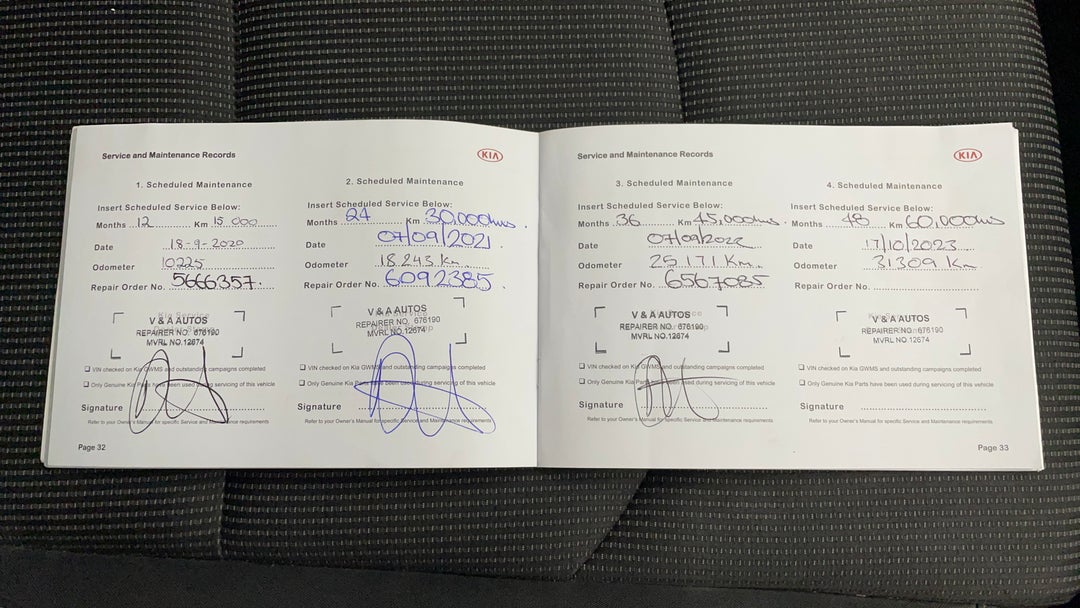 Service and Maintenance Records
KIA
1. Scheduled Maintenance
Insert Scheduled Service Below:
Months 12 Km 15 000
Date 18-9-2020
Odometer 10225
Repair Order No. 5666357.
V & A AUTOS
REPAIRER NO. 676190
MVRL NO.12674
VIN checked on Kia GWMS and outstanding campaigns completed
Only Genuine Kia Parts have been used during servicing of this vehicle
Signature
Refer to your Owner's Manual for specific Service and Maintenance requirements
Page 32
2. Scheduled Maintenance
Insert Scheduled Service Below:
Months 24 Km 30,000kms.
Date 07/09/2021.
Odometer 18243 Km.
Repair Order No. 6092385.
V & A AUTOS
REPAIRER NO. 676190
MVRL NO.12674
VIN checked on Kia GWMS and outstanding campaigns completed
Only Genuine Kia Parts have been used during servicing of this vehicle
Signature
Refer to your Owner's Manual for specific Service and Maintenance requirements
Service and Maintenance Records
KIA
3. Scheduled Maintenance
Insert Scheduled Service Below:
Months 36 Km 45,000kms.
Date 07/09/2022
Odometer 25171 Km.
Repair Order No. 6567085
V & A AUTOS
REPAIRER NO. 676190
MVRL NO.12674
VIN checked on Kia GWMS and outstanding campaigns completed
Only Genuine Kia Parts have been used during servicing of this vehicle
Signature
Refer to your Owner's Manual for specific Service and Maintenance requirements
4. Scheduled Maintenance
Insert Scheduled Service Below:
Months 48 Km 60,000kms
Date 17/10/2023
Odometer 31309 Km
Repair Order No.
V & A AUTOS
REPAIRER NO. 676190
MVRL NO.12674
VIN checked on Kia GWMS and outstanding campaigns completed
Only Genuine Kia Parts have been used during servicing of this vehicle
Signature
Refer to your Owner's Manual for specific Service and Maintenance requirements
Page 33